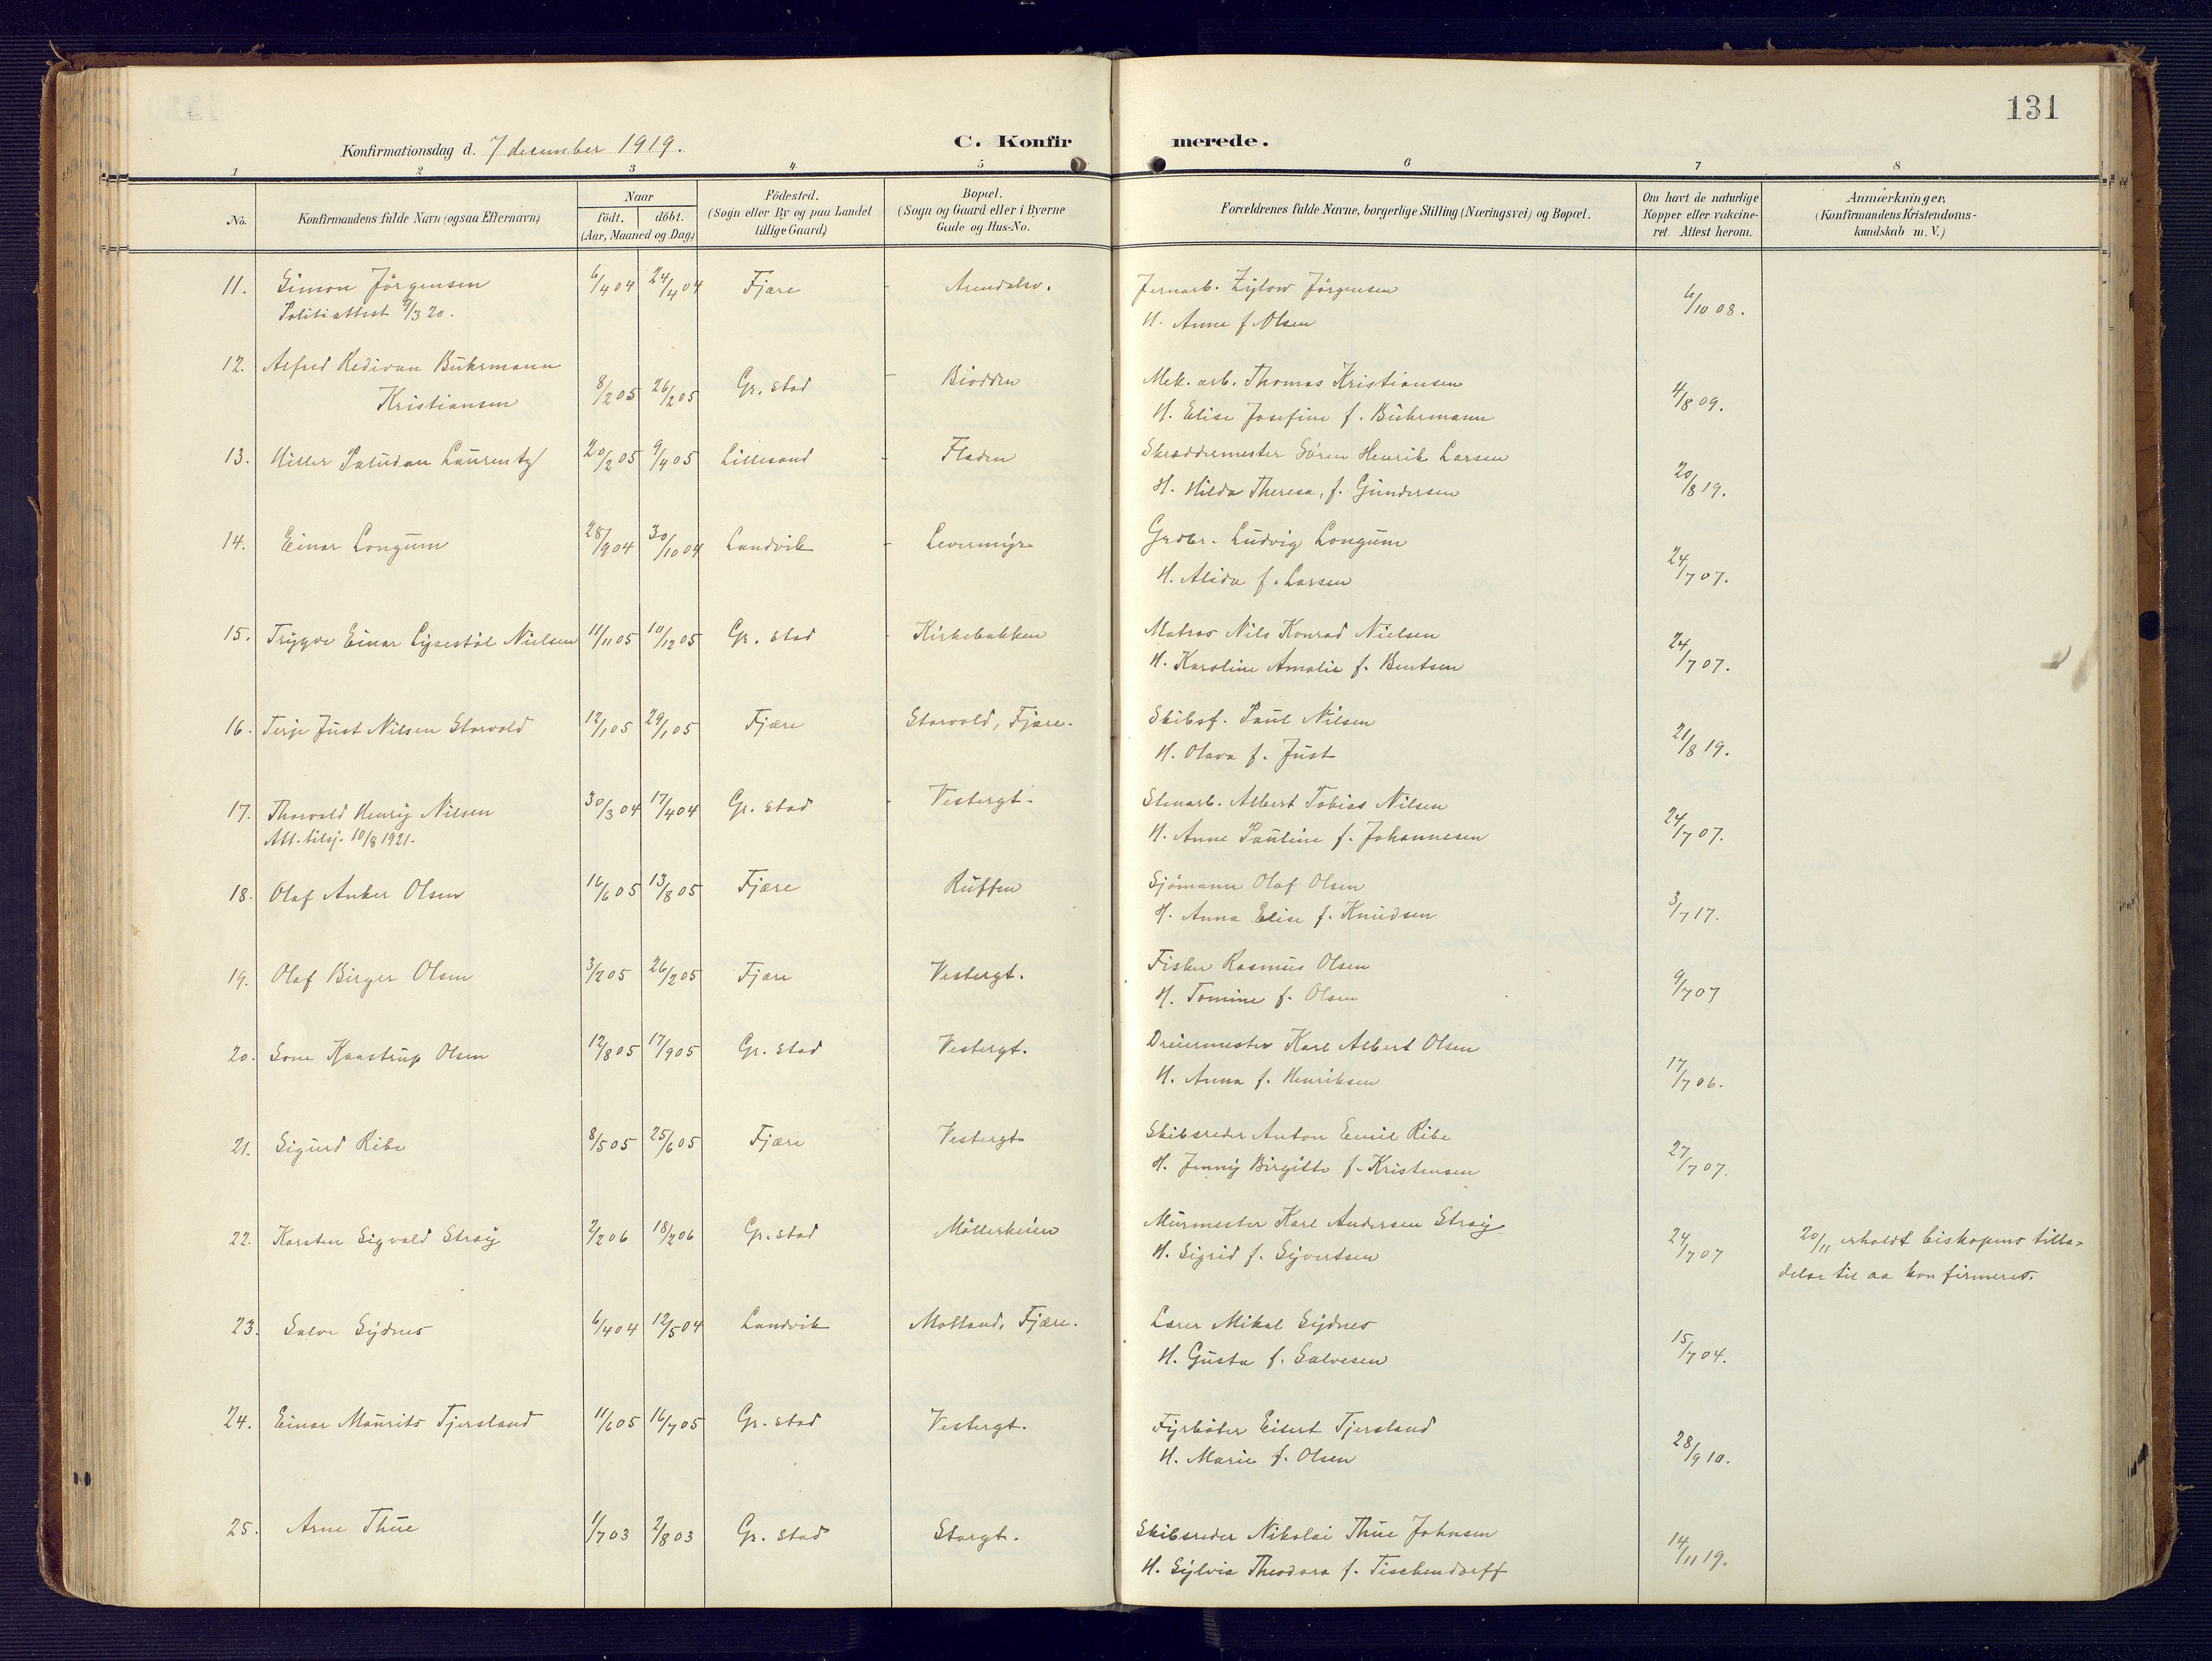 131
Konfirmationsdag d. 7 desember 1919. C. Konfirmerede.
1 2 3 4 5 6 7 8
No. Konfirmandens fulde Navn (ogsaa Efternavn) Naar födt. döbt. (Aar, Maaned og Dag) Födested. (Sogn eller By og paa Landet tillige Gaard) Bopæl. (Sogn og Gaard eller i Byerne Gade og Hus-No. Forældrenes fulde Navne, borgerlige Stilling (Næringsvei) og Bopæl. Om havt de naturlige Kopper eller vakcineret. Attest herom. Anmærkninger. (Konfirmandens Kristendomskundskab m. V.)
11. Simon Jörgensen 6/4 04 24/4 04 Fjære - Arendalsv. Jernarb. Zylow Jörgensen 6/10 08.
Politiattest 9/3 20. H. Anne f. Olsen
12. Alfred Redivan Bührmann 8/2 05 26/2 05 Gr. stad - Biodden Mek. arb. Thomas Kristiansen 4/8 09.
Kristiansen H. Elise Josefine f. Bührmann
13. Hiller Paludan Laurentz 20/2 05 9/4 05 Lillesand - Fladen Skræddermester Sören Henrik Larsen 20/8 19.
H. Hilda Theresa, f. Gundersen
14. Einar Longum 28/9 04 30/10 04 Landvik - Levermyr Grdbr. Ludvig Longum 24/7 07.
H. Alida f. Larsen
15. Trygve Einar Lysestöl Nielsen 11/11 05 10/12 05 Gr. stad - Kirkebakken Matros Nils Konrad Nielsen 24/7 07.
H. Karoline Amalie f. Bentsen
16. Terje Just Nilsen Storvold 12/1 05 29/1 05 Fjære Storvold, Fjære. Skibsf. Paul Nilsen 21/8 19.
H. Olava f. Just
17. Thorvald Henry Nilsen 30/3 04 17/4 04 Gr. stad - Vestergt. Stenarb. Albert Tobias Nilsen 24/7 07.
Att. tilsj. 10/8 1921. H. Anne Pauline f. Johannesen
18. Olaf Anker Olsen 16/6 05 13/8 05 Fjære Ruffen Sjömann Olaf Olsen 3/7 17.
H. Anna Elise f. Knudsen
19. Olaf Birger Olsen 3/2 05 26/2 05 Fjære Vestergt. Fisker Rasmus Olsen 9/7 07
H. Tomine f. Olsen
20. Sone Kaastrup Olsen 12/8 05 17/9 05 Gr. stad Vestergt. Dreiermester Karl Albert Olsen 17/7 06.
H. Anna f. Henriksen
21. Sigurd Ribe 8/5 05 25/6 05 Fjære Vestergt Skibsreder Anton Emil Ribe 27/7 07.
H. Jenny Birgitte f. Kristensen
22. Karsten Sigvald Stray 2/2 06 18/2 06 Gr. stad Möllerheien Murmester Karl Andersen Stray 24/7 07 20/11 erholdt biskopens tilla-
H. Sigrid f. Syvertsen delse til aa konfirmeres.
23. Salve Sydnes 6/4 04 12/5 04 Landvik Molland, Fjære. Lærer Mikal Sydnes 15/7 04.
H. Gusta f. Salvesen
24. Einar Maurits Tjersland 11/6 05 16/7 05 Gr. stad Vestergt. Fyrböter Eilert Tjersland 28/9 10.
H. Marie f. Olsen
25. Arne Thue 1/7 03 2/8 03 Gr. stad Storgt. Skibsreder Nikolai Thue Johnsen 14/11 19.
H. Sylvia Theodora f. Tischendorff